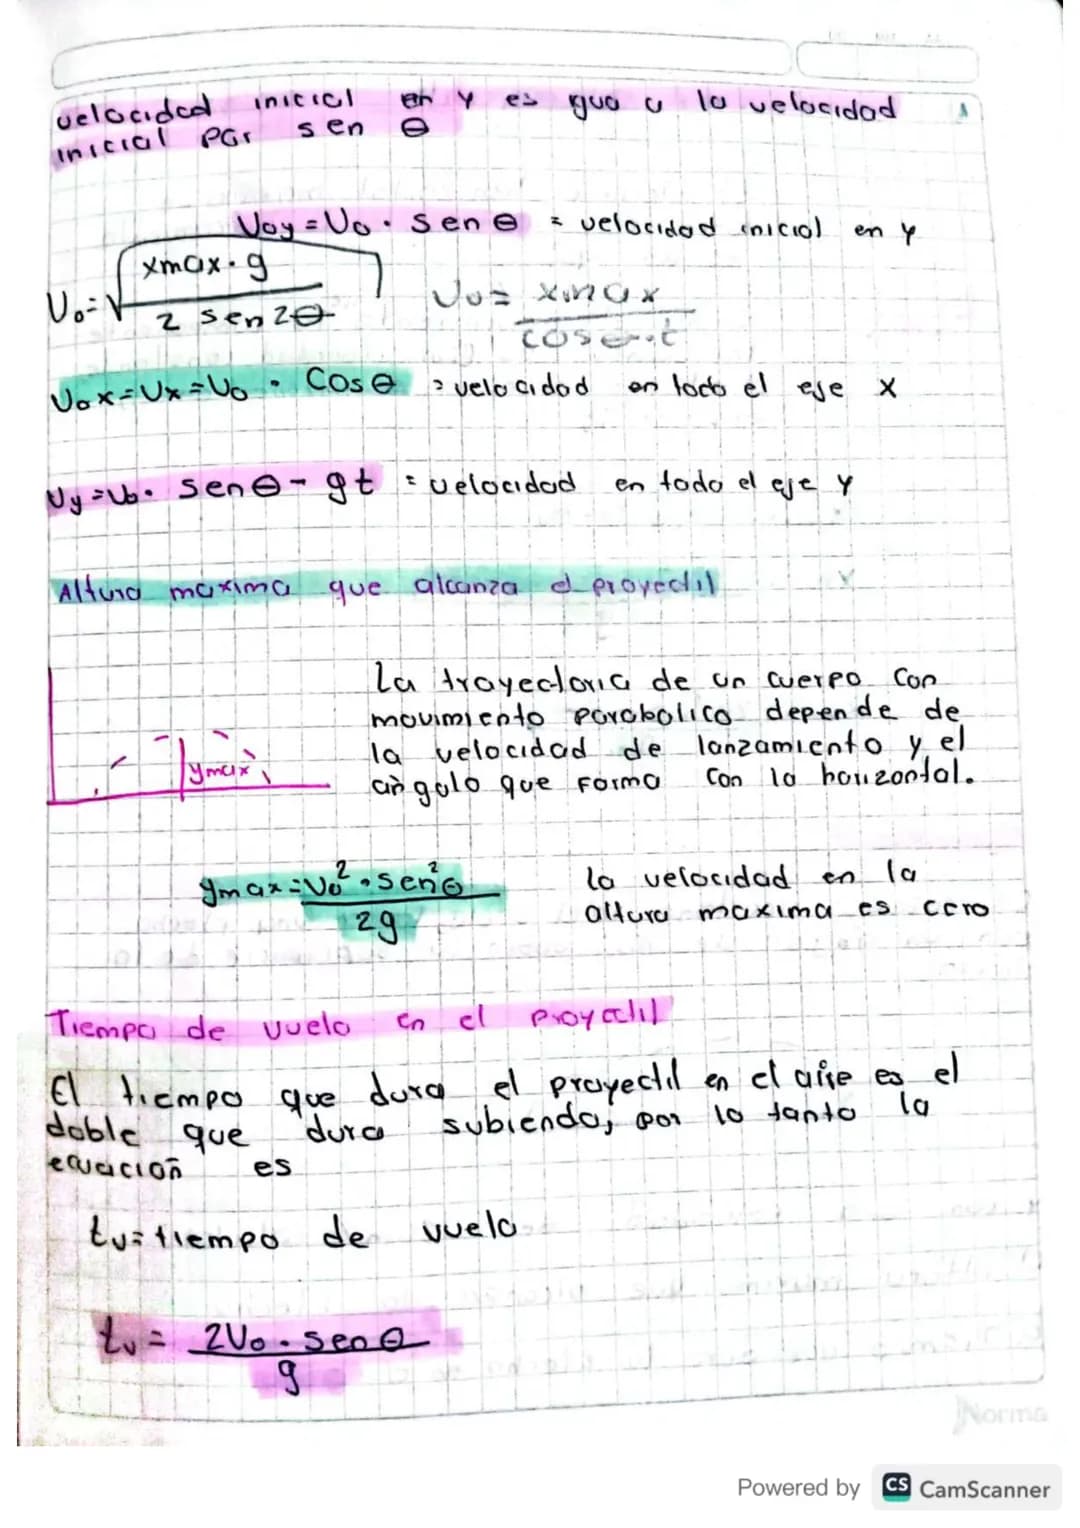 velocidad inicial en y es igua a la velocidad
inicial par sen θ
Voy = Vo · Sen θ = velocidad inicial en y
Vo = √ xmax · g / 2 sen 2θ
Vo = xmax / cosθ · t
Vox = Vx = Vo · Cos θ = velocidad en todo el eje X
Vy = Vo · Sen θ - gt = velocidad en todo el eje y
Altura maxima que alcanza el proyectil
La trayectoria de un cuerpo con
movimiento parabolico depende de
la velocidad de lanzamiento y el
ángulo que Forma con la horizontal.
ymax
ymax = Vo² · sen²θ / 2g
la velocidad en la
altura maxima es cero
Tiempo de vuelo en el proyectil
El tiempo que dura el proyectil en el aire es el
doble que dura subiendo, por lo tanto la
ecuación es
tv = tiempo de vuelo
tv = 2Vo · sen θ / g
Norma
Powered by CS CamScanner